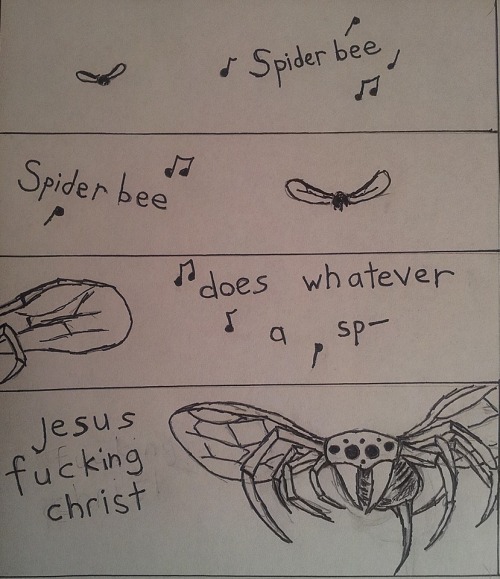 Spider bee
Spider bee
does whatever
a sp-
Jesus
fucking
christ